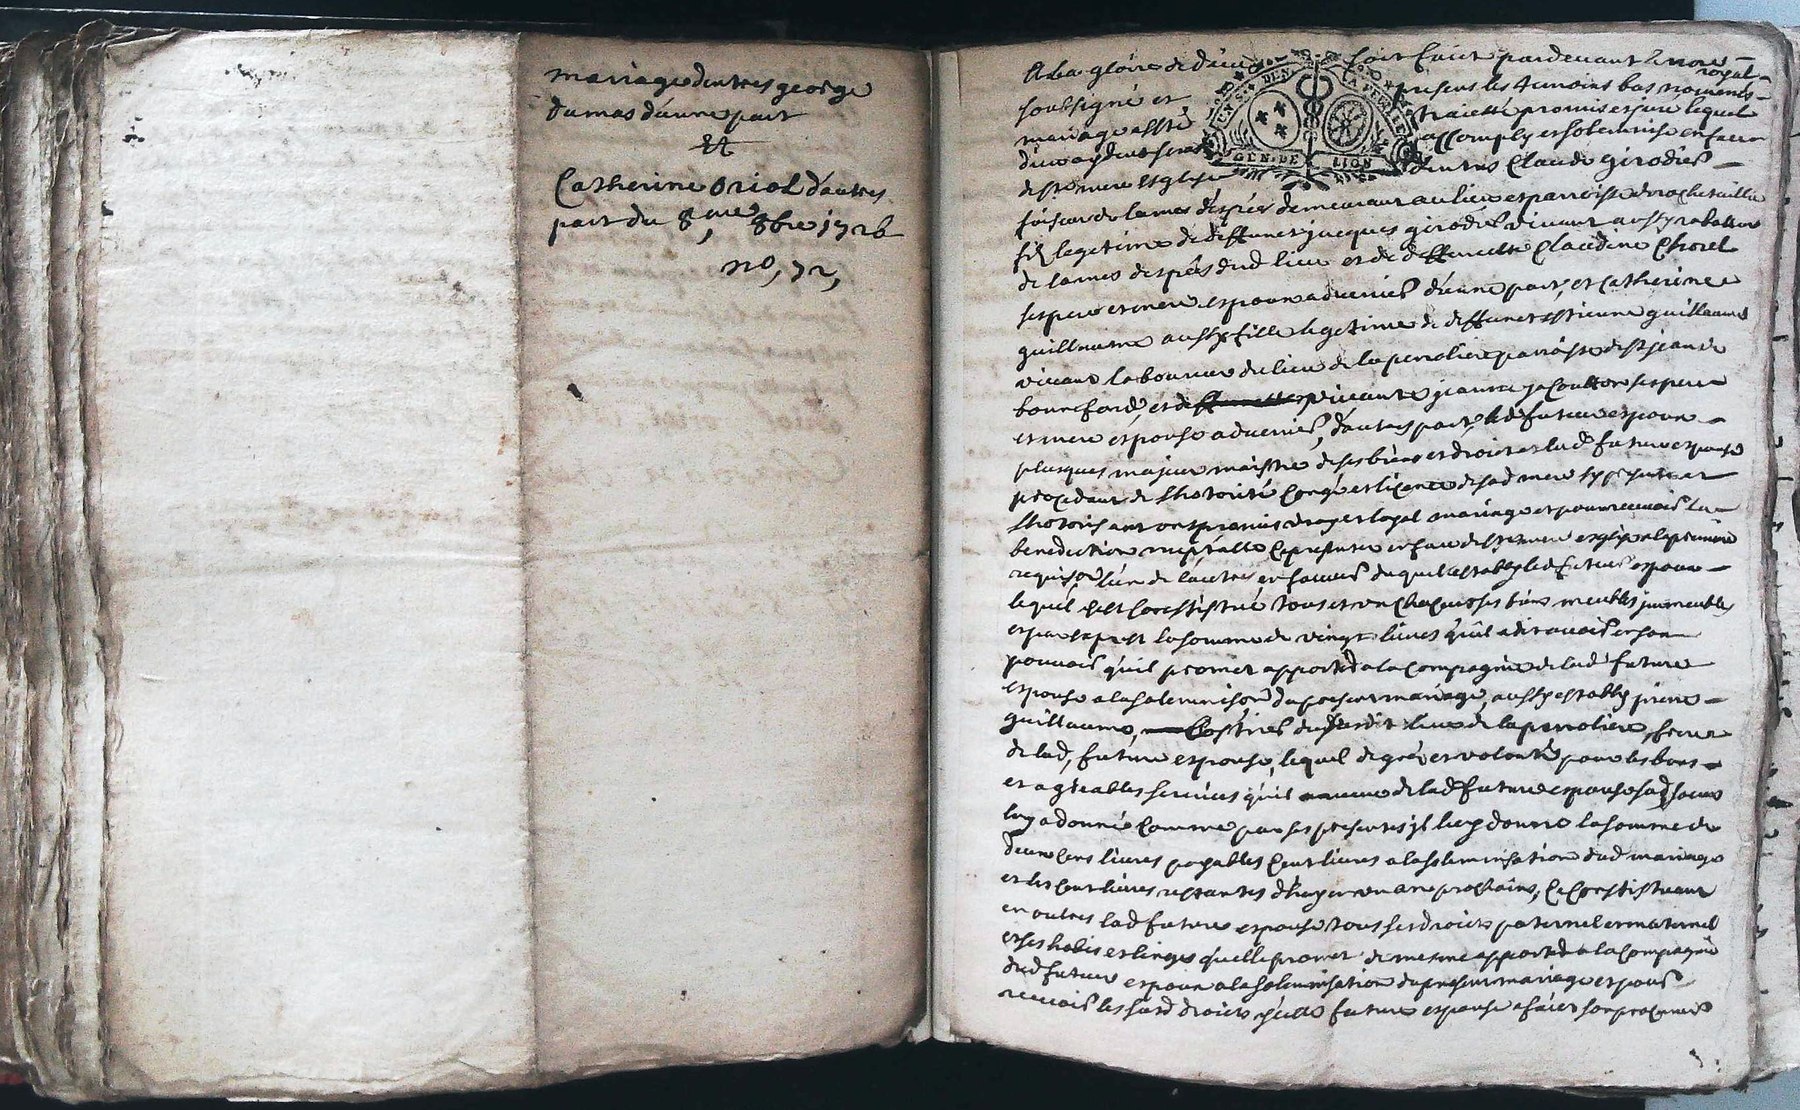 mariage d'entres george
dumas d'une part
Et
Catherine oriol d'autres
part du 8me 8bre 1726
no, 72,
A La gloire de dieu soit faict pardevant Le no.re royal
soubsigné et presens les temoins bas nommés
mariage a esté traietté promis et juré lequel
dieu aydent sera accomply et solemnisé en face
de ste mere Esglise d'entres Claude girodies
faiseur de lames d'espées demeurant au lieu et parroisse de rochetaillie
fils legetime de deffunct jacques girodies vivant aussy
de lames d'espées dud lieu et de deffuncte Claudine Chorel
ses pere et mere espoux advenir d'une part, et Catherine
guillaume aussy fille legetime de deffunct estienne guillaume
vivant laboureur du lieu de la perroliere parroisse de st jean de
bonnefond, et de vivante jeanne ses pere
et mere espouse advenir, d'autres part, led futur espoux
plusques majeur maistre de ses biens et droict et lad future espouse
procedant de l'hotorité congé et licence de sad mere ypresente et
l'hotorisant ont promis vray et loyal mariage et pour recevoir la
benediction nuptialle se presenter en face de ste mere esglise a la premiere
requis.on l'un de l'autres, en faveur duquel estably led futur espoux
lequel s'est constistué tous et un chacun ses biens meubles immeubles
et par expres la somme de vingt livres qu'il a dit avoir en son
pouvoir qu'il promet apporter a la compagnie de lad future
espouse a la solemnison du present mariage, aussy estably piere
guillaume, dudit lieu de la perroliere, frere
de lad, future espouse, lequel de gré et volonté pour les bons
et agreables services qu'il de lad future espouse sad soeur
luy a donné comme par ses presentes il luy donne la somme de
deux cens livres payables cent livres a la solemnisation dud mariage
et les cent livres restantes d'huy en un an prochains, se constistuant
en outres lad future espouse tous ses droicts paternel et maternel
et ses habis et linges qu'elle promet de mesme apporter a la compagnie
dud futur espoux a la solemnisation du present mariage et pour
recevoir les susd droicts ycelle future espouse a faict son procureur
GEN. DE LION